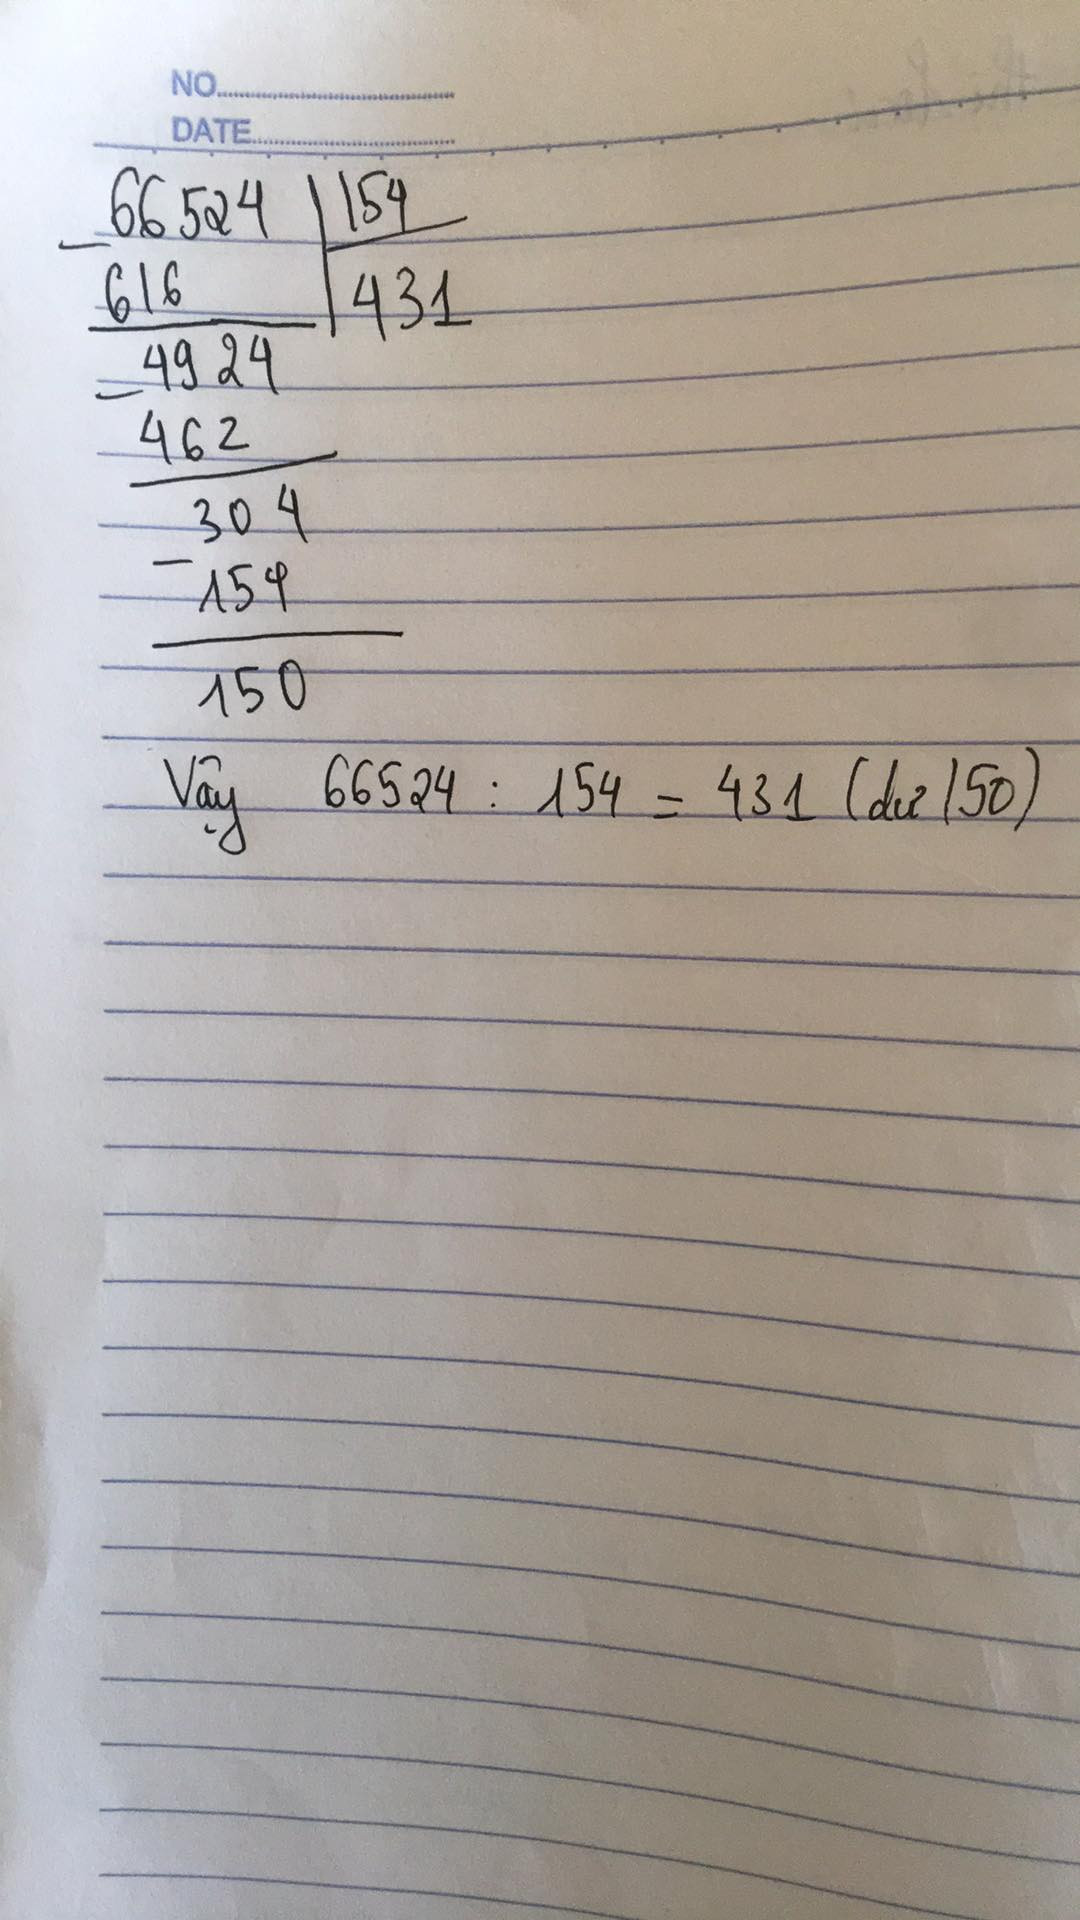 NO
DATE
66524 | 154
- 616 | 431
4924
- 462
304
- 154
150
Vậy 66524 : 154 = 431 (dư 150)